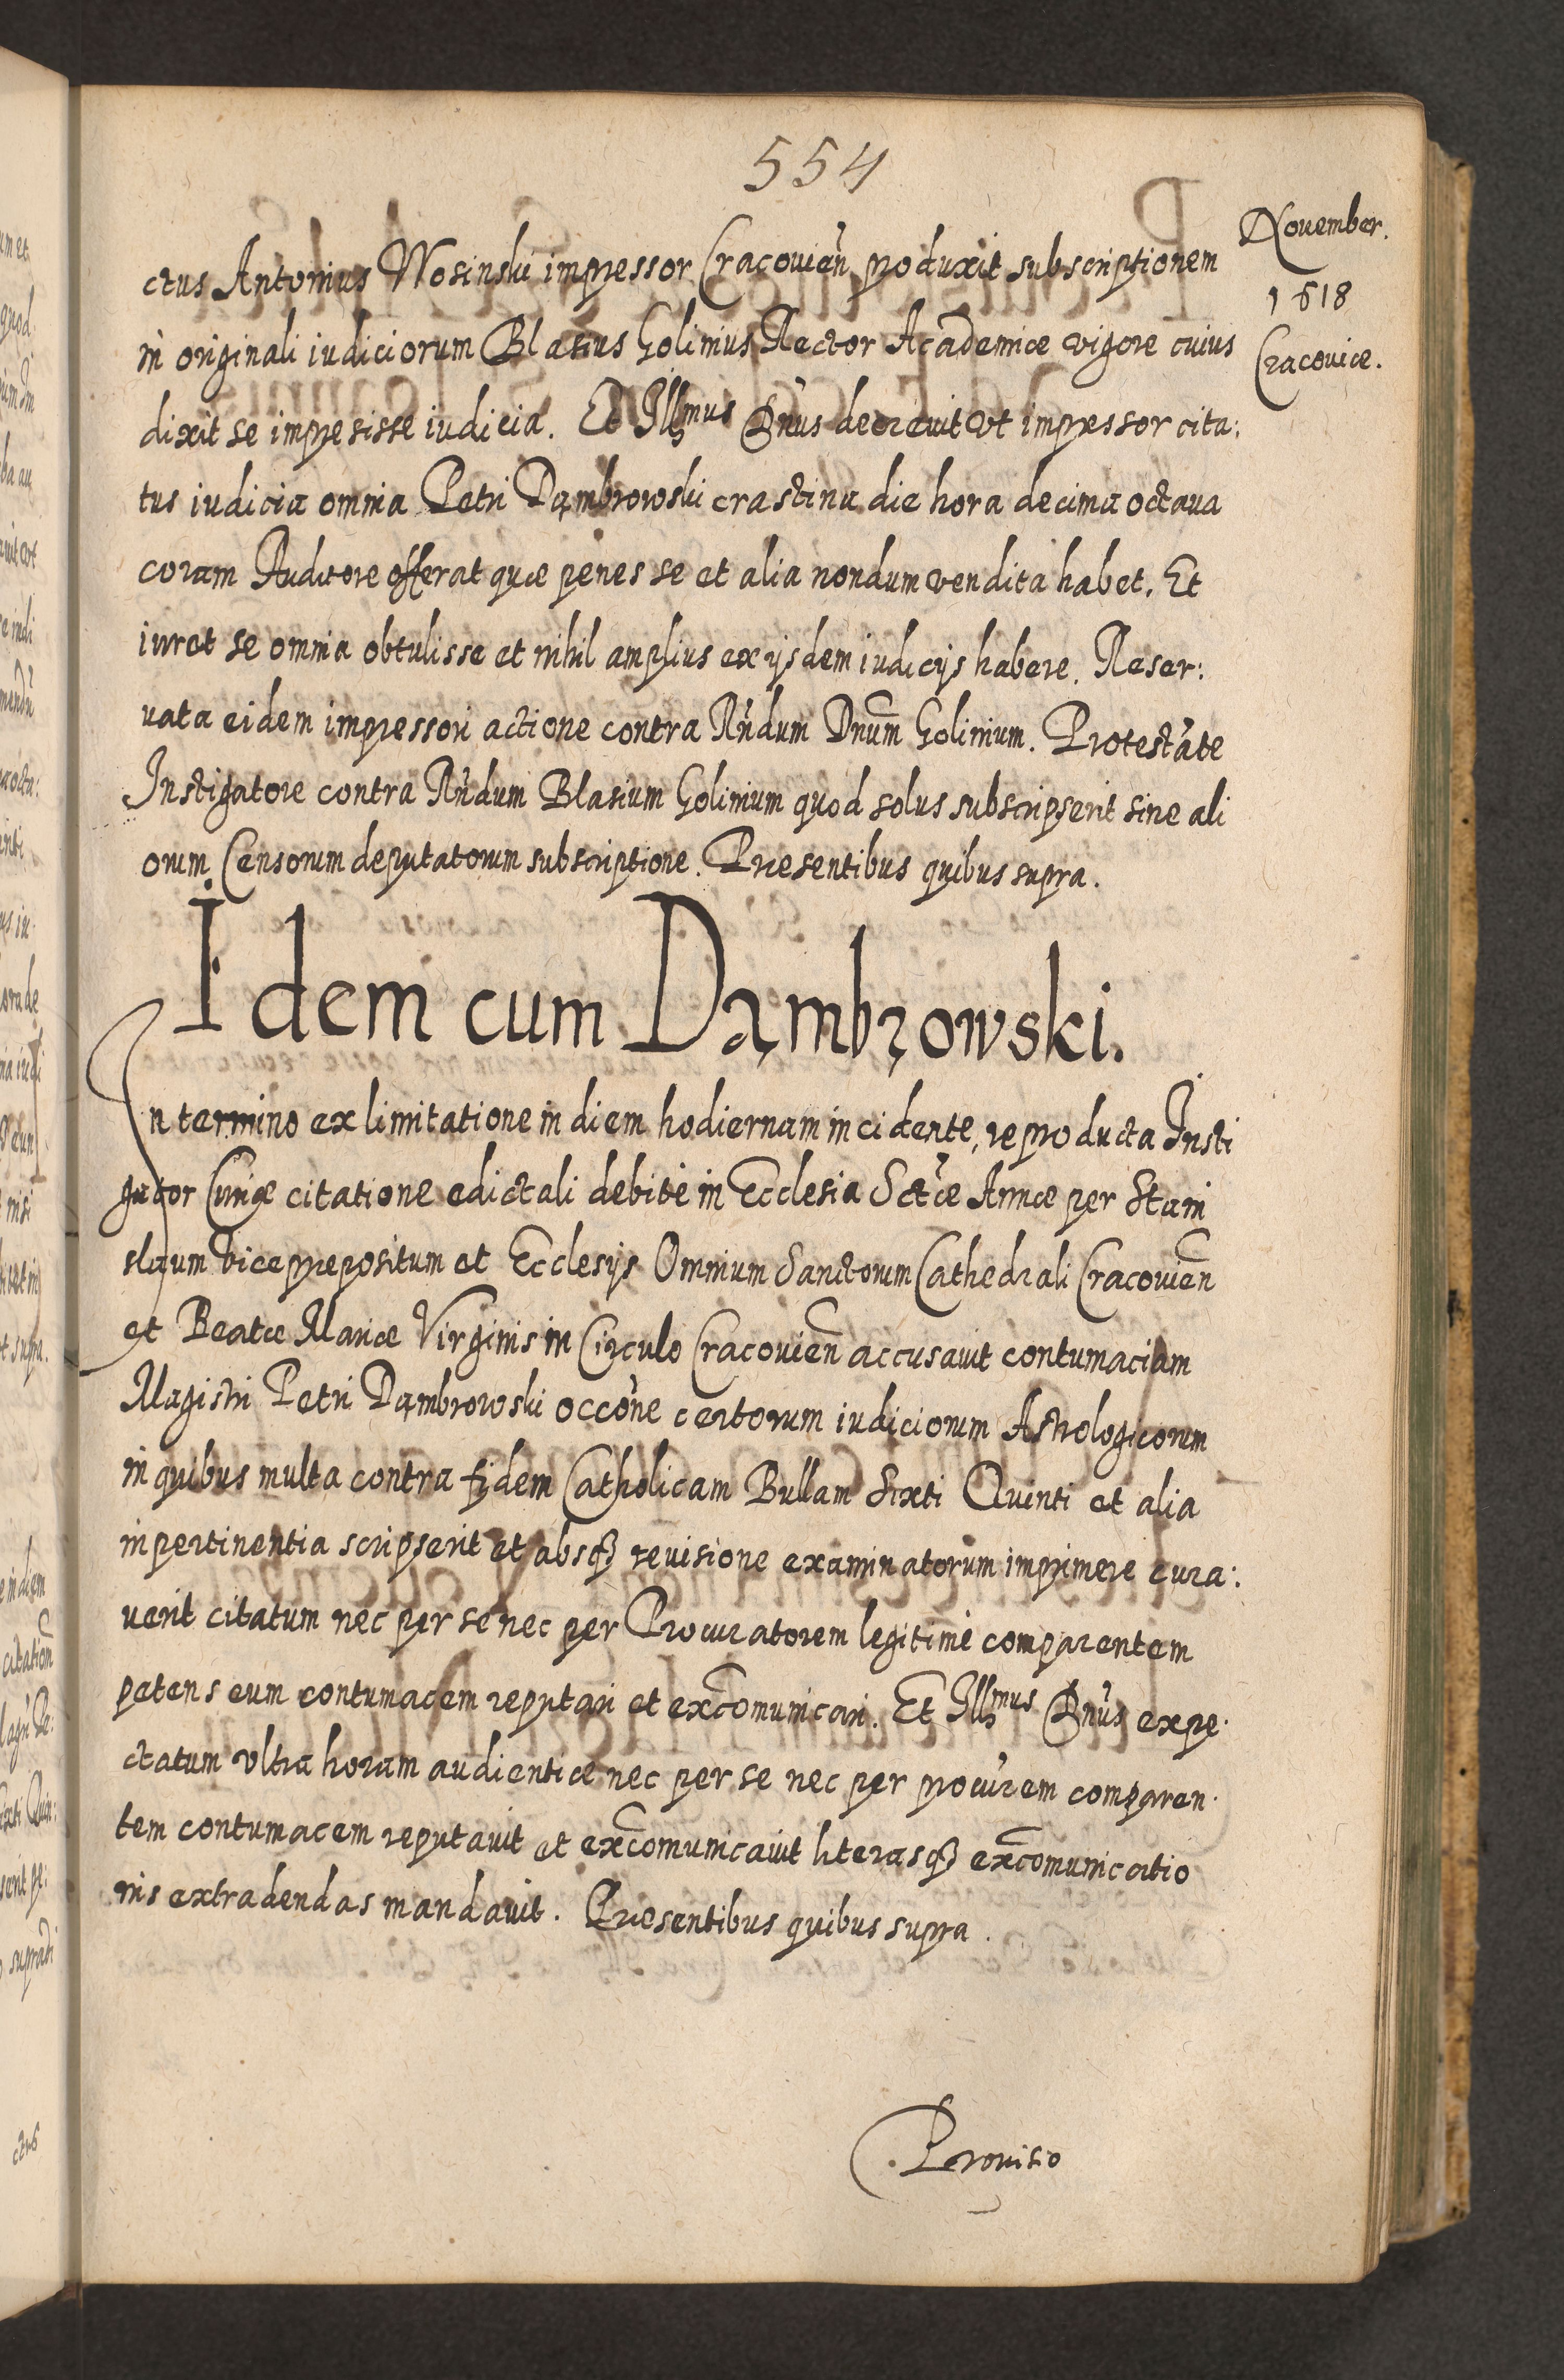 554
November.
1618
Cracoviæ.
ctus Antonius Wosinski impressor Cracovien̄ produxit subscriptionem
in originali iudiciorum Blasius Golinius Rector Academiæ vigore cuius
dixit se impresisse iudicia. Et Illmus Dn̄us decrevit vt impressor cita:
tus iudicia omnia Petri Dąmbrowski crastina die hora decima octava
coram Auditore offerat quæ penes se et alia nondum vendita habet. Et
iuret se omnia obtulisse et nihil amplius ex ijsdem iudicijs habere. Reser:
uata eidem impressori actione contra Rn̄dum Dnum̄ Golinium. Protestāte
Instigatore contra Rn̄dum Blasium Golinium quod solus subscripserit sine ali
orum Censorum deputatorum subscriptione. Præsentibus quibus supra.
Idem cum Dąmbrowski.
In termino ex limitatione in diem hodiernam incidente, reproducta Insti
gator Curiæ citatione edictali debitè in Ecclesia Sctǣ Annæ per Stani
slaum vicepræpositum et Ecclesijs Omnium Sanctorum Cathedrali Cracovien̄
et Beatæ Mariæ Virginis in Circulo Cracovien̄ accusavit contumaciam
Magistri Petri Dąmbrowski occōne certorum iudiciorum Astrologicorum
in quibus multa contra fidem Catholicam Bullam Sixti Quinti et alia
inpertinentia scripserit et absqꝫ revisione examinatorum imprimere cura:
uerit citatum nec per se nec per Procuratorem legitimè comparentem
petens eum contumacem reputari et exc̄omunicari. Et Illmus Dn̄us expe.
ctatum vltra horam audientiæ nec per se nec per procūrem comparen.
tem contumacem reputavit et exc̄omunicavit literasqꝫ exc̄omunicatio
nis extradendas mandavit. Præsentibus quibus supra.
Provisio